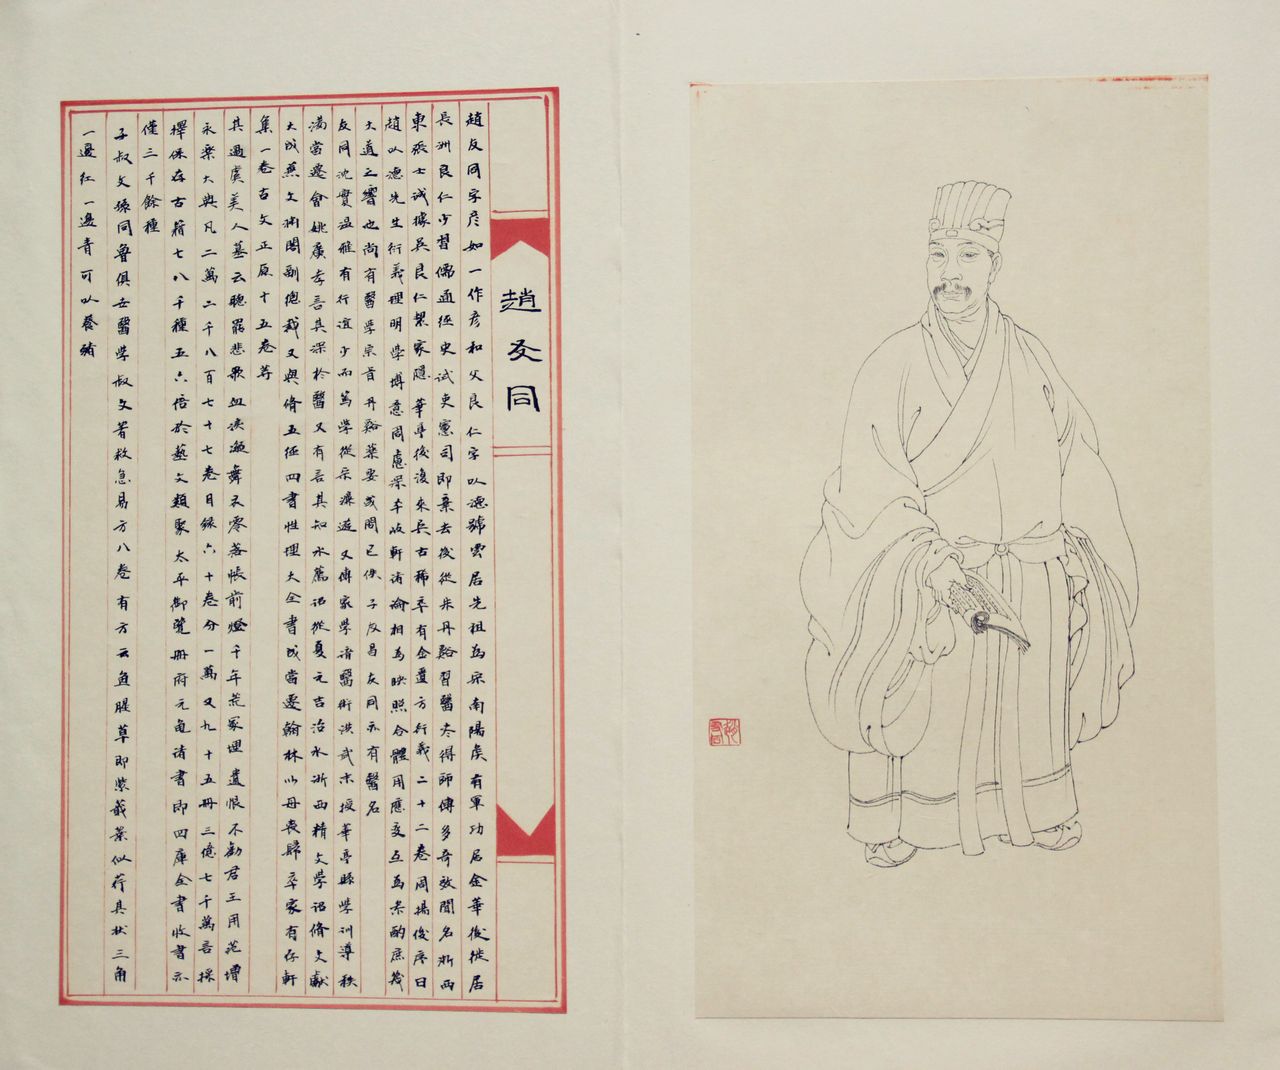 趙友同
趙友同字彥如一作彥和父良仁字以德號雲居先祖為宋南陽侯有軍功居金華後徙居
長洲良仁少習儒通經史試吏憲司即棄去後從朱丹谿習醫太得師傳多奇效聞名浙西
東張士誠據吳良仁挈家隱華亭後復來吳古稀卒有金匱方衍義二十二卷周揚俊序曰
趙以德先生衍義理明學博意周慮深本改軒諸論相為映照合體用應變互為參酌庶幾
大道之響也尚有醫學宗旨丹谿藥要或問已佚子友昌友同亦有醫名
友同沈實溫雅有行誼少而篤學從宋濂遊又傳家學諳醫術洪武末授華亭縣學訓導秩
滿當遷會姚廣孝言其深於醫又有言其知水薦詔從夏元吉治水浙西精文學詔脩文獻
大成燕文淵閣副總裁又與脩五經四書性理大全書成當遷翰林以母喪歸卒家有存軒
集一卷古文正原十五卷等
其過虞美人墓云聽罷悲歌血淚濺舞衣零落帳前燈千年荒冢埋遺恨不勸君王用范增
永樂大典凡二萬二千八百七十七卷目錄六十卷分一萬又九十五冊三億七千萬言採
擇保存古籍七八千種五六倍於藝文類聚太平御覽冊府元龜諸書即四庫全書收書亦
僅三千餘種
子叔文孫同魯俱云醫學叔文著救急易方八卷有方云魚腥草即紫蕺葉似荇其狀三角
一邊紅一邊青可以養豬